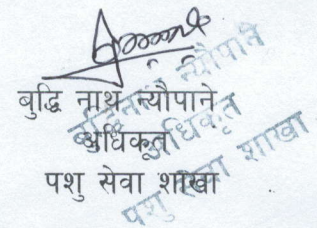 बुद्धि नाथ न्यौपाने
अधिकृत
पशु सेवा शाखा
बुद्धिनाथ न्यौपाने
अधिकृत
पशु सेवा शाखा